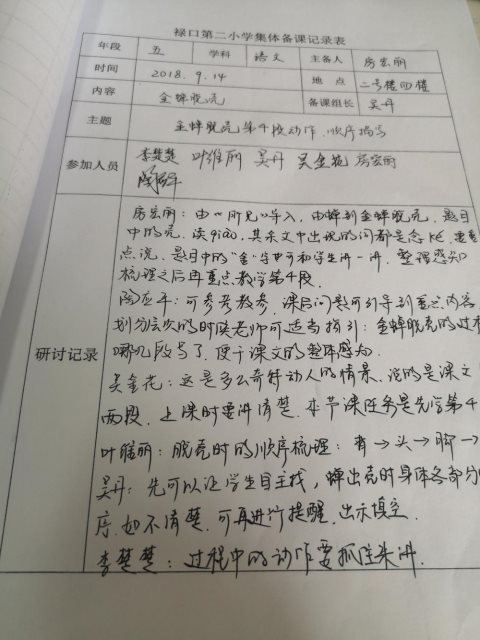 禄口第二小学集体备课记录表
年段 五 学科 语文 主备人 房宏丽
时间 2018.9.14 地点 二号楼四楼
内容 金蝉脱壳 备课组长 吴丹
主题 金蝉脱壳第4段动作、顺序描写
参加人员 李楚楚 叶维丽 吴丹 吴金花 房宏丽
陶应平
研讨记录
房宏丽：由《所见》导入，由蝉到金蝉脱壳，题目
中的壳，读qiào，其余文中出现的问都是念ké，重
点说，题目中的"金"字也可和学生讲一讲，整理感知
梳理之后再重点教学第4段
陶应平：可参考教参，课后问题可引导到重点内容
划分层次的时候老师可适当指引：金蝉脱壳的过
哪几段写了，便于课文的整体感知
吴金花：这是多么奇特动人的情景，说的是课文
两段，上课时要讲清楚，本节课任务是先学第4
叶维丽：脱壳时的顺序梳理：背→头→脚→
吴丹：先可以让学生自主找，蝉出壳时身体各部分
序，如不清楚，可再进行提醒，出示填空
李楚楚：过程中的动作要抓住来讲.